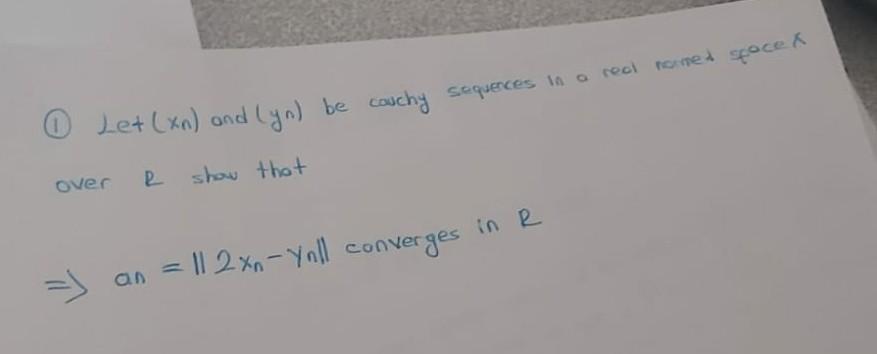 ① Let (xn) and (yn) be cauchy sequences in a real normed space X
over R show that
⇒ an = || 2xn - yn|| converges in R